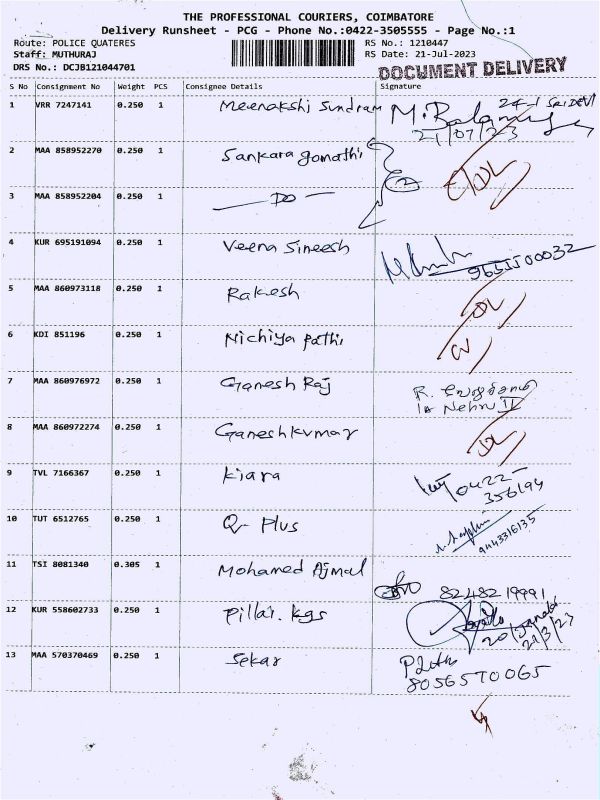 THE PROFESSIONAL COURIERS, COIMBATORE
Delivery Runsheet - PCG - Phone No.:0422-3505555 - Page No.:1
Route: POLICE QUATERES RS No.: 1210447
Staff: MUTHURAJ RS Date: 21-Jul-2023
DRS No.: DCJB121044701 DOCUMENT DELIVERY
S No Consignment No Weight PCS Consignee Details Signature
1 VRR 7247141 0.250 1 Meenakshi Sundram 24-1 SRIDEVI
21/07/23
2 MAA 858952270 0.250 1 Sankara gomathi
3 MAA 858952204 0.250 1 — DO — 2
4 KUR 695191094 0.250 1 Veena Sineesh
5 MAA 860973118 0.250 1 Rakesh
6 KDI 851196 0.250 1 Nichiya pathi
7 MAA 860976972 0.250 1 Ganesh Raj R.
Nehru II
8 MAA 860972274 0.250 1 Ganeshkumar
9 TVL 7166367 0.250 1 Kiara 0422-
356194
10 TUT 6512765 0.250 1 Q- Plus 9443316135
11 TSI 8081340 0.305 1 Mohamed Ajmal
82482 19991
12 KUR 558602733 0.250 1 Pillai. kgs
13 MAA 570370469 0.250 1 Sekar
8056570065